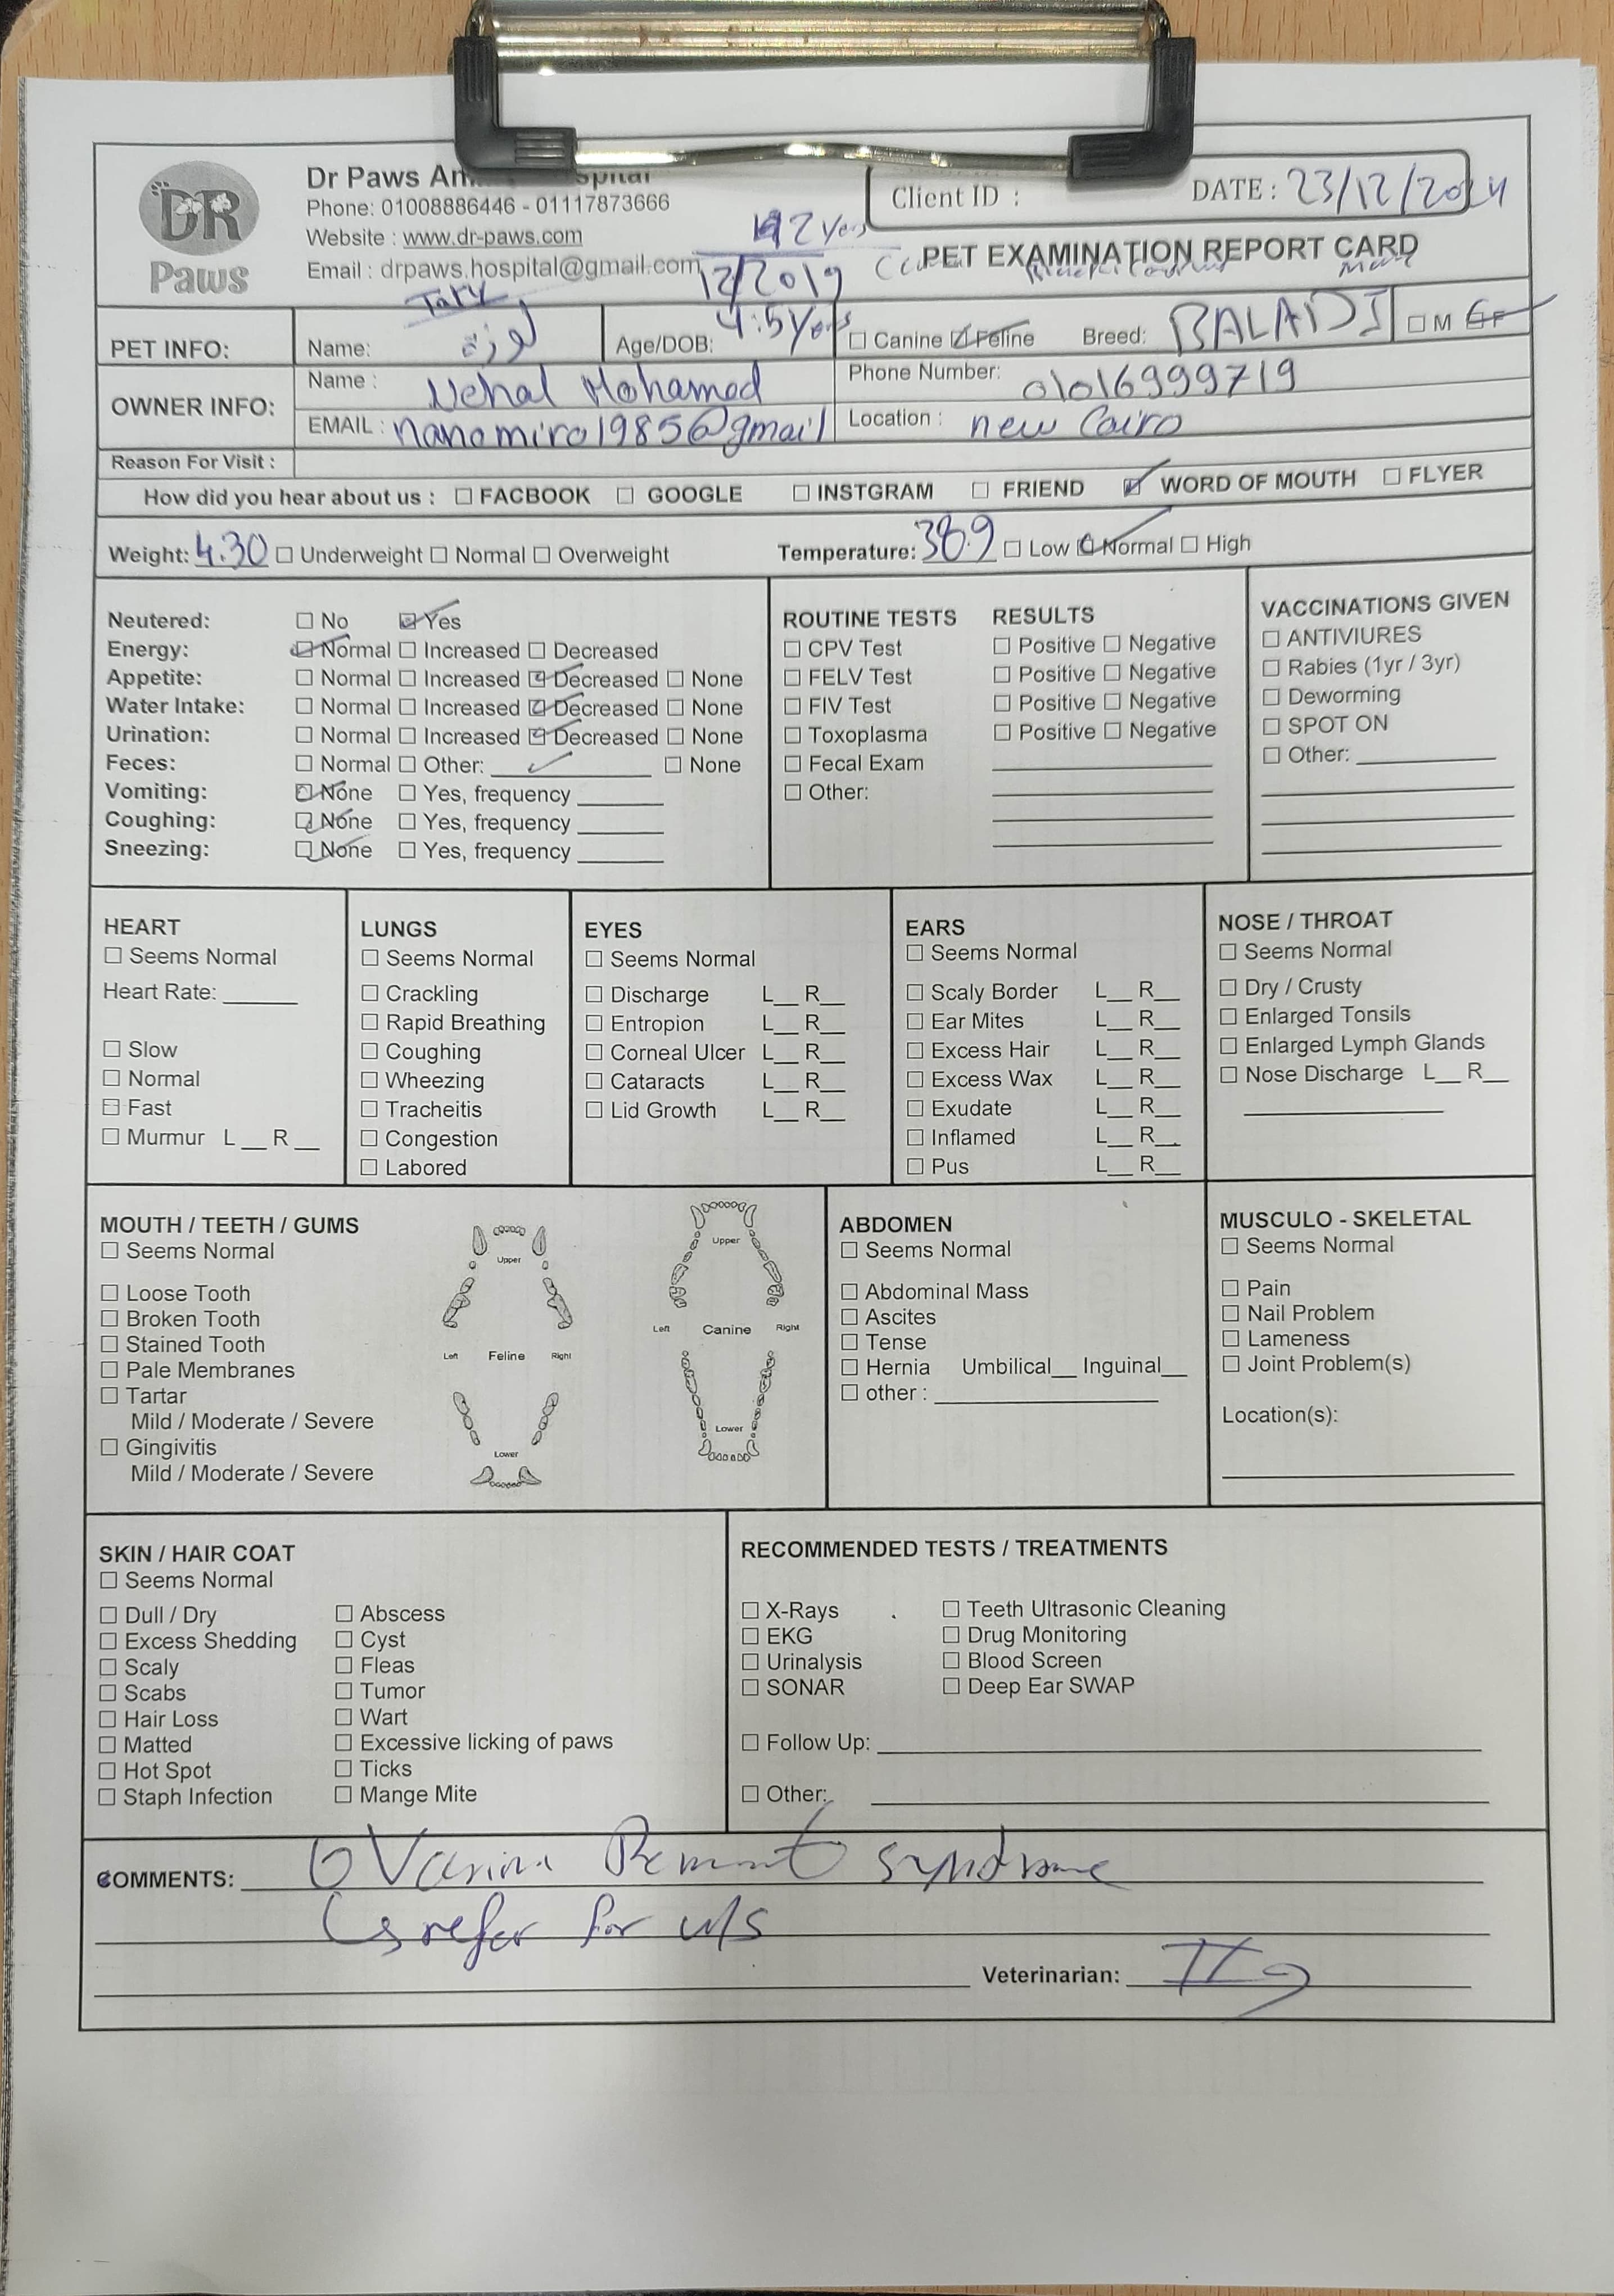 DR
Paws
Dr Paws
Phone: 01008886446 - 01117873666
Website : www.dr-paws.com
Email : drpaws.hospital@gmail.com
Client ID :
DATE : 23/12/2024
12/2019
PET EXAMINATION REPORT CARD
PET INFO:
Name: لوزة
Age/DOB: 4.5 Years
☐ Canine ☑ Feline
Breed: BALADI
☐ M ☑ F
OWNER INFO:
Name : Nehal Mohamed
Phone Number: 01016999719
EMAIL : nanamiro1985@gmail
Location : new Cairo
Reason For Visit :
How did you hear about us : ☐ FACBOOK ☐ GOOGLE ☐ INSTGRAM ☐ FRIEND ☑ WORD OF MOUTH ☐ FLYER
Weight: 4.30 ☐ Underweight ☐ Normal ☐ Overweight
Temperature: 38.9 ☐ Low ☑ Normal ☐ High
Neutered: ☐ No ☑ Yes
Energy: ☑ Normal ☐ Increased ☐ Decreased
Appetite: ☐ Normal ☐ Increased ☑ Decreased ☐ None
Water Intake: ☐ Normal ☐ Increased ☑ Decreased ☐ None
Urination: ☐ Normal ☐ Increased ☑ Decreased ☐ None
Feces: ☐ Normal ☐ Other: ✓ ☐ None
Vomiting: ☑ None ☐ Yes, frequency
Coughing: ☑ None ☐ Yes, frequency
Sneezing: ☑ None ☐ Yes, frequency
ROUTINE TESTS RESULTS
☐ CPV Test ☐ Positive ☐ Negative
☐ FELV Test ☐ Positive ☐ Negative
☐ FIV Test ☐ Positive ☐ Negative
☐ Toxoplasma ☐ Positive ☐ Negative
☐ Fecal Exam
☐ Other:
VACCINATIONS GIVEN
☐ ANTIVIURES
☐ Rabies (1yr / 3yr)
☐ Deworming
☐ SPOT ON
☐ Other:
HEART
☐ Seems Normal
Heart Rate:
☐ Slow
☐ Normal
☐ Fast
☐ Murmur L__ R__
LUNGS
☐ Seems Normal
☐ Crackling
☐ Rapid Breathing
☐ Coughing
☐ Wheezing
☐ Tracheitis
☐ Congestion
☐ Labored
EYES
☐ Seems Normal
☐ Discharge L__ R__
☐ Entropion L__ R__
☐ Corneal Ulcer L__ R__
☐ Cataracts L__ R__
☐ Lid Growth L__ R__
EARS
☐ Seems Normal
☐ Scaly Border L__ R__
☐ Ear Mites L__ R__
☐ Excess Hair L__ R__
☐ Excess Wax L__ R__
☐ Exudate L__ R__
☐ Inflamed L__ R__
☐ Pus L__ R__
NOSE / THROAT
☐ Seems Normal
☐ Dry / Crusty
☐ Enlarged Tonsils
☐ Enlarged Lymph Glands
☐ Nose Discharge L__ R__
MOUTH / TEETH / GUMS
☐ Seems Normal
☐ Loose Tooth
☐ Broken Tooth
☐ Stained Tooth
☐ Pale Membranes
☐ Tartar
Mild / Moderate / Severe
☐ Gingivitis
Mild / Moderate / Severe
Upper
Left Feline Right
Lower
Upper
Left Canine Right
Lower
ABDOMEN
☐ Seems Normal
☐ Abdominal Mass
☐ Ascites
☐ Tense
☐ Hernia Umbilical__ Inguinal__
☐ other :
MUSCULO - SKELETAL
☐ Seems Normal
☐ Pain
☐ Nail Problem
☐ Lameness
☐ Joint Problem(s)
Location(s):
SKIN / HAIR COAT
☐ Seems Normal
☐ Dull / Dry
☐ Excess Shedding
☐ Scaly
☐ Scabs
☐ Hair Loss
☐ Matted
☐ Hot Spot
☐ Staph Infection
☐ Abscess
☐ Cyst
☐ Fleas
☐ Tumor
☐ Wart
☐ Excessive licking of paws
☐ Ticks
☐ Mange Mite
RECOMMENDED TESTS / TREATMENTS
☐ X-Rays
☐ EKG
☐ Urinalysis
☐ SONAR
☐ Teeth Ultrasonic Cleaning
☐ Drug Monitoring
☐ Blood Screen
☐ Deep Ear SWAP
☐ Follow Up:
☐ Other:
COMMENTS: syndrome
refer for u/s
Veterinarian: